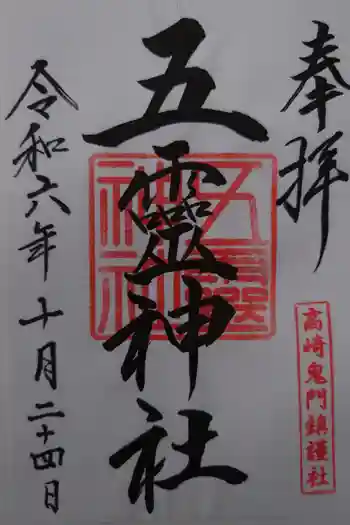 奉拝
高崎鬼門鎮護社
五靈神社
五靈神社
令和六年十月二十四日